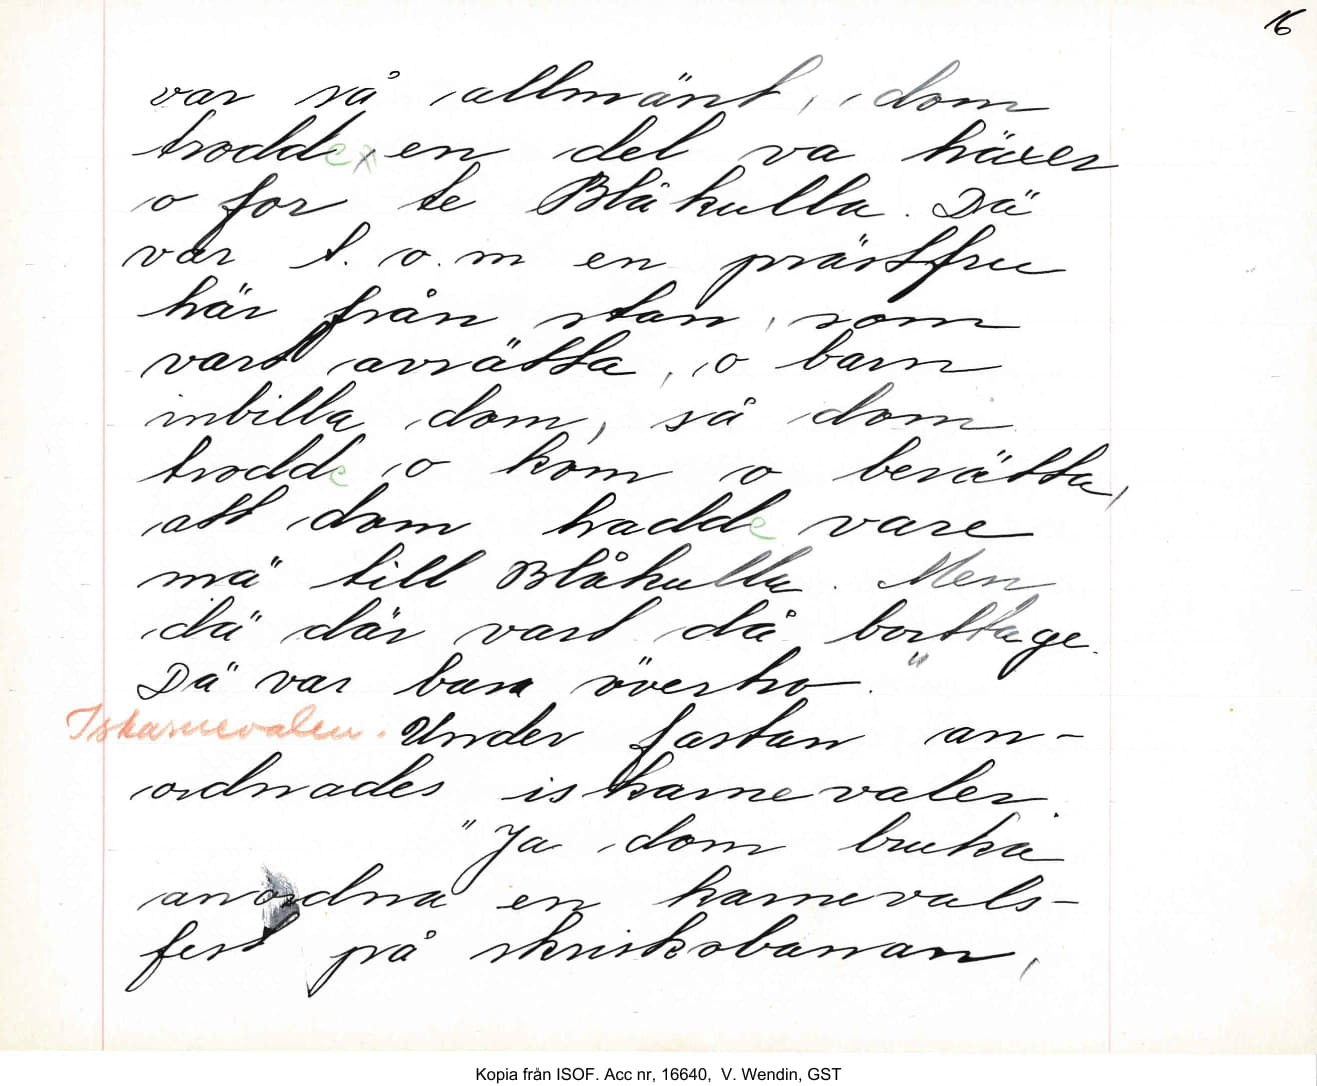 16
var så allmänt, dom
trodde, en del va häxer
o for te Blåkulla. Dä
var t.o.m en prästfru
här från stan, som
vart avrätta, o barn
inbilla dom, så dom
trodde o kom o berätta,
att dom hadde vare
mä till Blåkulla. Men
dä där vart då borttage.
Dä var bara övertro."
Iskarnevalen. Under fastan an-
ordnades iskarnevaler.
"Ja dom bruka
anordna en karnevals-
fest på skriskobanan,
Kopia från ISOF. Acc nr, 16640, V. Wendin, GST